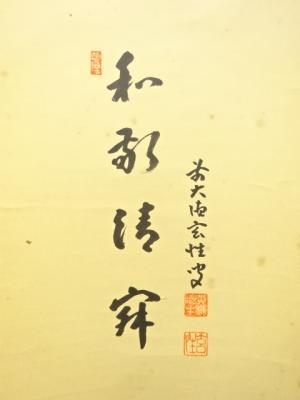 和敬清寂
前大德玄性叟